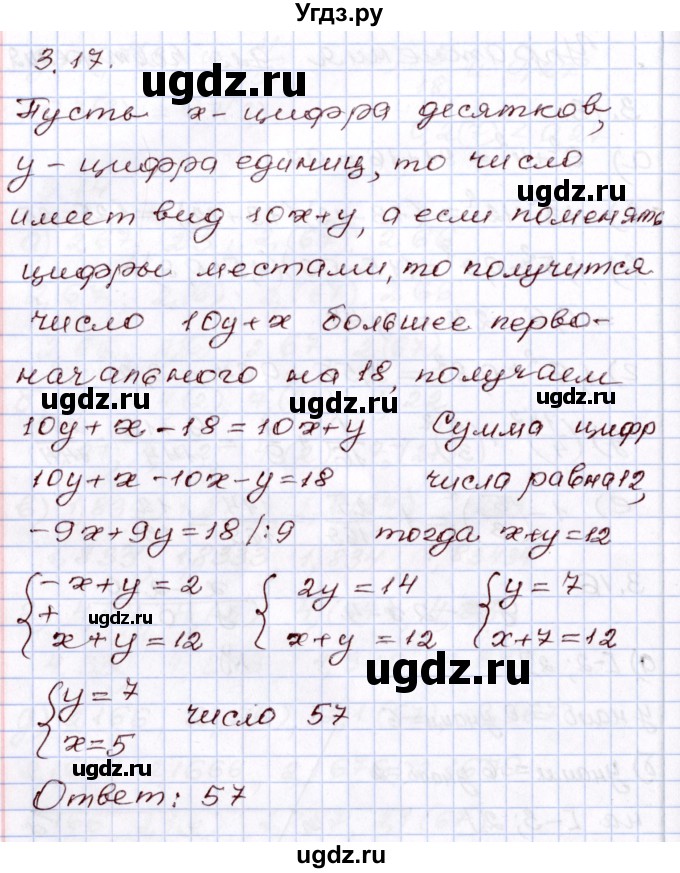 Угдз.ру
3.17.
ugdz.ru
Пусть x - цифра десятков,
y - цифра единиц, то число
ugdz.ru
имеет вид 10x+y, а если поменять
цифры местами, то получится
число 10y+x большее перво-
начального на 18, получаем
ugdz.ru ugdz.ru
10y+x-18=10x+y Сумма цифр
10y+x-10x-y=18 числа равна 12,
-9x+9y=18 /:9 тогда x+y=12
{-x+y=2 {2y=14 {y=7
+
ugdz.ru
x+y=12 x+y=12 x+7=12
ugdz.ru
{y=7 число 57
x=5
ugdz.ru
Ответ: 57
ugdz.ru